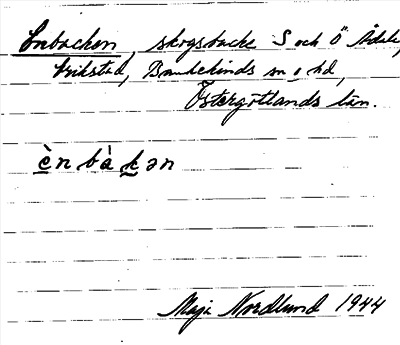 Enbacken, skogsbacke S och Ö Ådala,
Erikstad, Bankekinds sn o hd,
Östergötlands län.
è̲n bà k̲ən
Maja Nordlund 1944